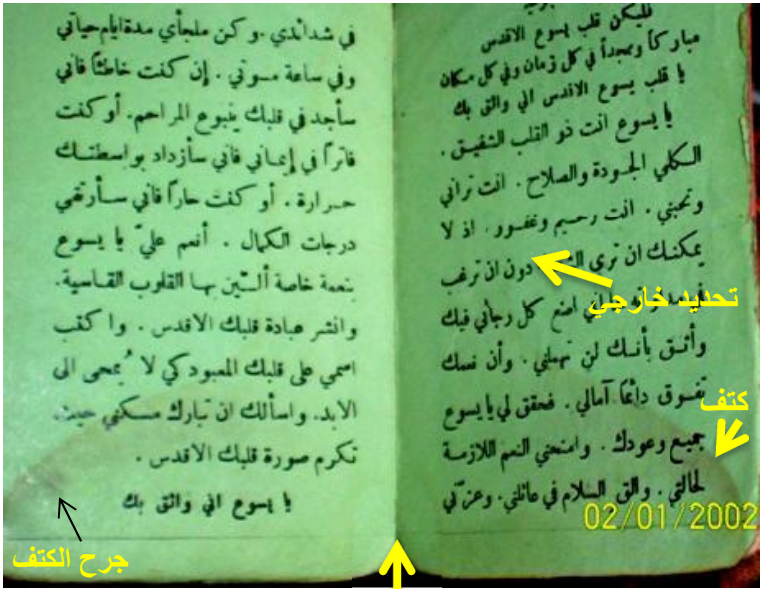 فليكن قلب يسوع الاقدس
مباركاً وممجداً في كل زمان وفي كل مكان
يا قلب يسوع الاقدس اني واثق بك
يا يسوع انت ذو القلب الشفيق .
الكلي الجودة والصلاح . انت تراني
وتحبني . انت رحيم وغفور . اذ لا
يمكنك ان ترى دون ان ترغب
تحديد خارجي
اضع كل رجائي فيك
وأثق بأنك لن تهملني . وأن نعمك
كتف
تفوق دائماً آمالي . فحقق لي يا يسوع
جميع وعودك . وامنحني النعم اللازمة
لحالتي . والق السلام في عائلتي . وعزني
02/01/2002
في شدائدي . وكن ملجأي مدة ايام حياتي
وفي ساعة موتي . إن كنت خاطئاً فاني
سأجد في قلبك ينبوع المراحم . أو كنت
فاتراً في إيماني فاني سأزداد بواسطتك
حرارة . أو كنت حاراً فاني سأرتقي
درجات الكمال . أنعم عليّ يا يسوع
بنعمة خاصة ألـيّن بها القلوب القاسية .
وانشر عبادة قلبك الاقدس . واكتب
اسمي على قلبك المعبود كي لا يُمحى الى
الابد . واسألك ان تبارك مسكني حيث
تكرم صورة قلبك الاقدس .
يا يسوع اني واثق بك
جرح الكتف